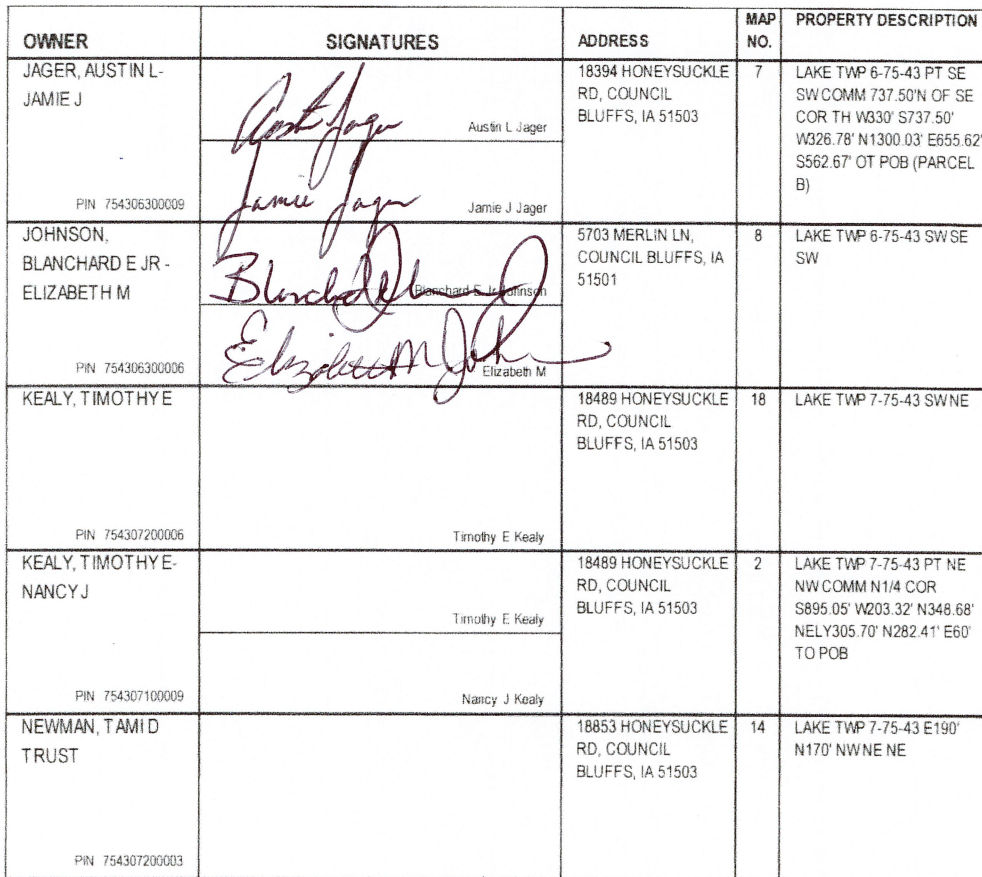 OWNER SIGNATURES ADDRESS MAP NO. PROPERTY DESCRIPTION
JAGER, AUSTIN L-
JAMIE J
PIN 754306300009
Austin Jager
Austin L Jager
Jamie Jager
Jamie J Jager
18394 HONEYSUCKLE
RD, COUNCIL
BLUFFS, IA 51503
7
LAKE TWP 6-75-43 PT SE
SW COMM 737.50'N OF SE
COR TH W330' S737.50'
W326.78' N1300.03' E655.62'
S562.67' OT POB (PARCEL
B)
JOHNSON,
BLANCHARD E JR -
ELIZABETH M
PIN 754306300006
Blanchard E. Jr Johnson
Elizabeth M Joh
Elizabeth M
5703 MERLIN LN,
COUNCIL BLUFFS, IA
51501
8
LAKE TWP 6-75-43 SW SE
SW
KEALY, TIMOTHY E
PIN 754307200006
Timothy E Kealy
18489 HONEYSUCKLE
RD, COUNCIL
BLUFFS, IA 51503
18
LAKE TWP 7-75-43 SW NE
KEALY, TIMOTHY E-
NANCY J
PIN 754307100009
Timothy E Kealy
Nancy J Kealy
18489 HONEYSUCKLE
RD, COUNCIL
BLUFFS, IA 51503
2
LAKE TWP 7-75-43 PT NE
NW COMM N1/4 COR
S895.05' W203.32' N348.68'
NELY305.70' N282.41' E60'
TO POB
NEWMAN, TAMI D
TRUST
PIN 754307200003
18853 HONEYSUCKLE
RD, COUNCIL
BLUFFS, IA 51503
14
LAKE TWP 7-75-43 E190'
N170' NW NE NE